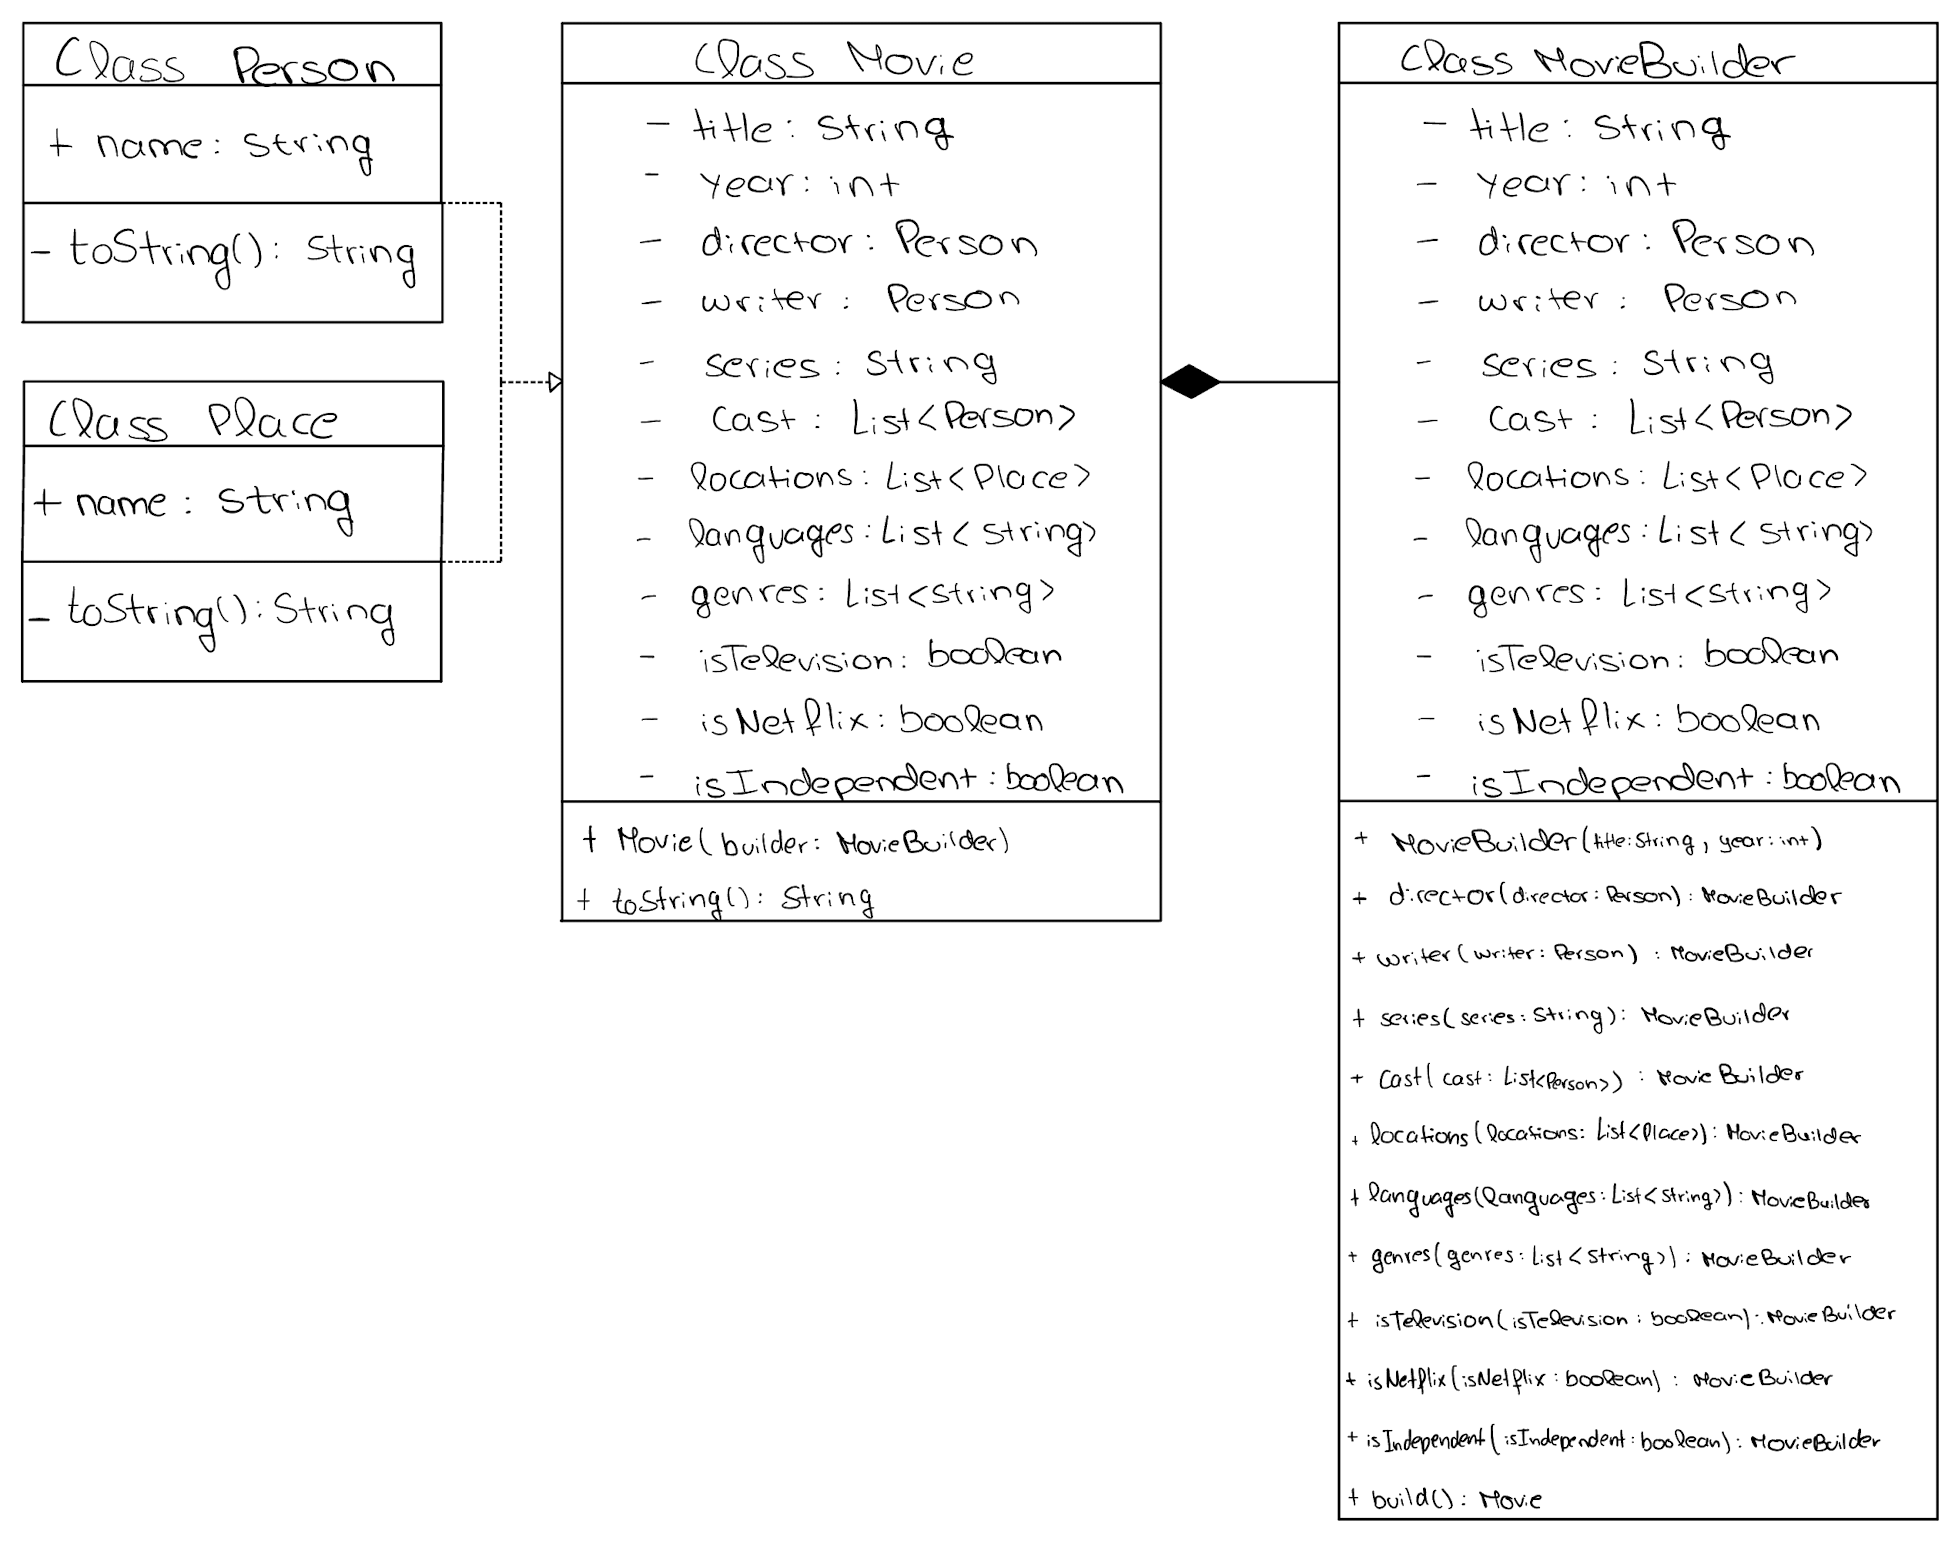 Class Person
+ name: String
- toString(): String
Class Place
+ name: String
- toString(): String
Class Movie
- title: String
- year: int
- director: Person
- writer: Person
- series: String
- Cast: List<Person>
- locations: List<Place>
- languages: List<String>
- genres: List<String>
- isTelevision: boolean
- isNetflix: boolean
- isIndependent: boolean
+ Movie(builder: MovieBuilder)
+ toString(): String
Class MovieBuilder
- title: String
- year: int
- director: Person
- writer: Person
- series: String
- Cast: List<Person>
- locations: List<Place>
- languages: List<String>
- genres: List<String>
- isTelevision: boolean
- isNetflix: boolean
- isIndependent: boolean
+ MovieBuilder(title: String, year: int)
+ director(director: Person): MovieBuilder
+ writer(writer: Person): MovieBuilder
+ series(series: String): MovieBuilder
+ Cast(cast: List<Person>): MovieBuilder
+ locations(locations: List<Place>): MovieBuilder
+ languages(languages: List<String>): MovieBuilder
+ genres(genres: List<String>): MovieBuilder
+ isTelevision(isTelevision: boolean): MovieBuilder
+ isNetflix(isNetflix: boolean): MovieBuilder
+ isIndependent(isIndependent: boolean): MovieBuilder
+ build(): Movie